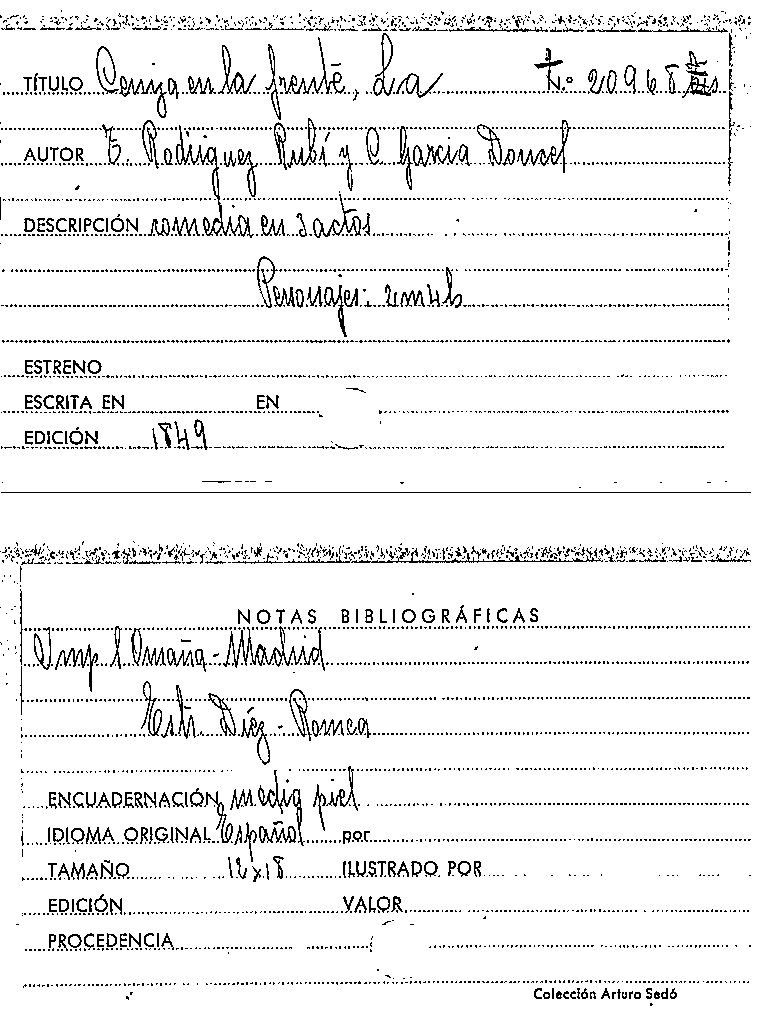 TÍTULO Ceniza en la frente, La N.º 20968
AUTOR T. Rodriguez Rubí y C Garcia Doncel
DESCRIPCIÓN comedia en 3 actos
Personajes: 2m4h
ESTRENO
ESCRITA EN EN
EDICIÓN 1849
NOTAS BIBLIOGRÁFICAS
Imp S. Omaña-Madrid
Estr. Díez-Romea
ENCUADERNACIÓN media piel
IDIOMA ORIGINAL Español por
TAMAÑO 12x18 ILUSTRADO POR
EDICIÓN VALOR
PROCEDENCIA
Colección Arturo Sedó